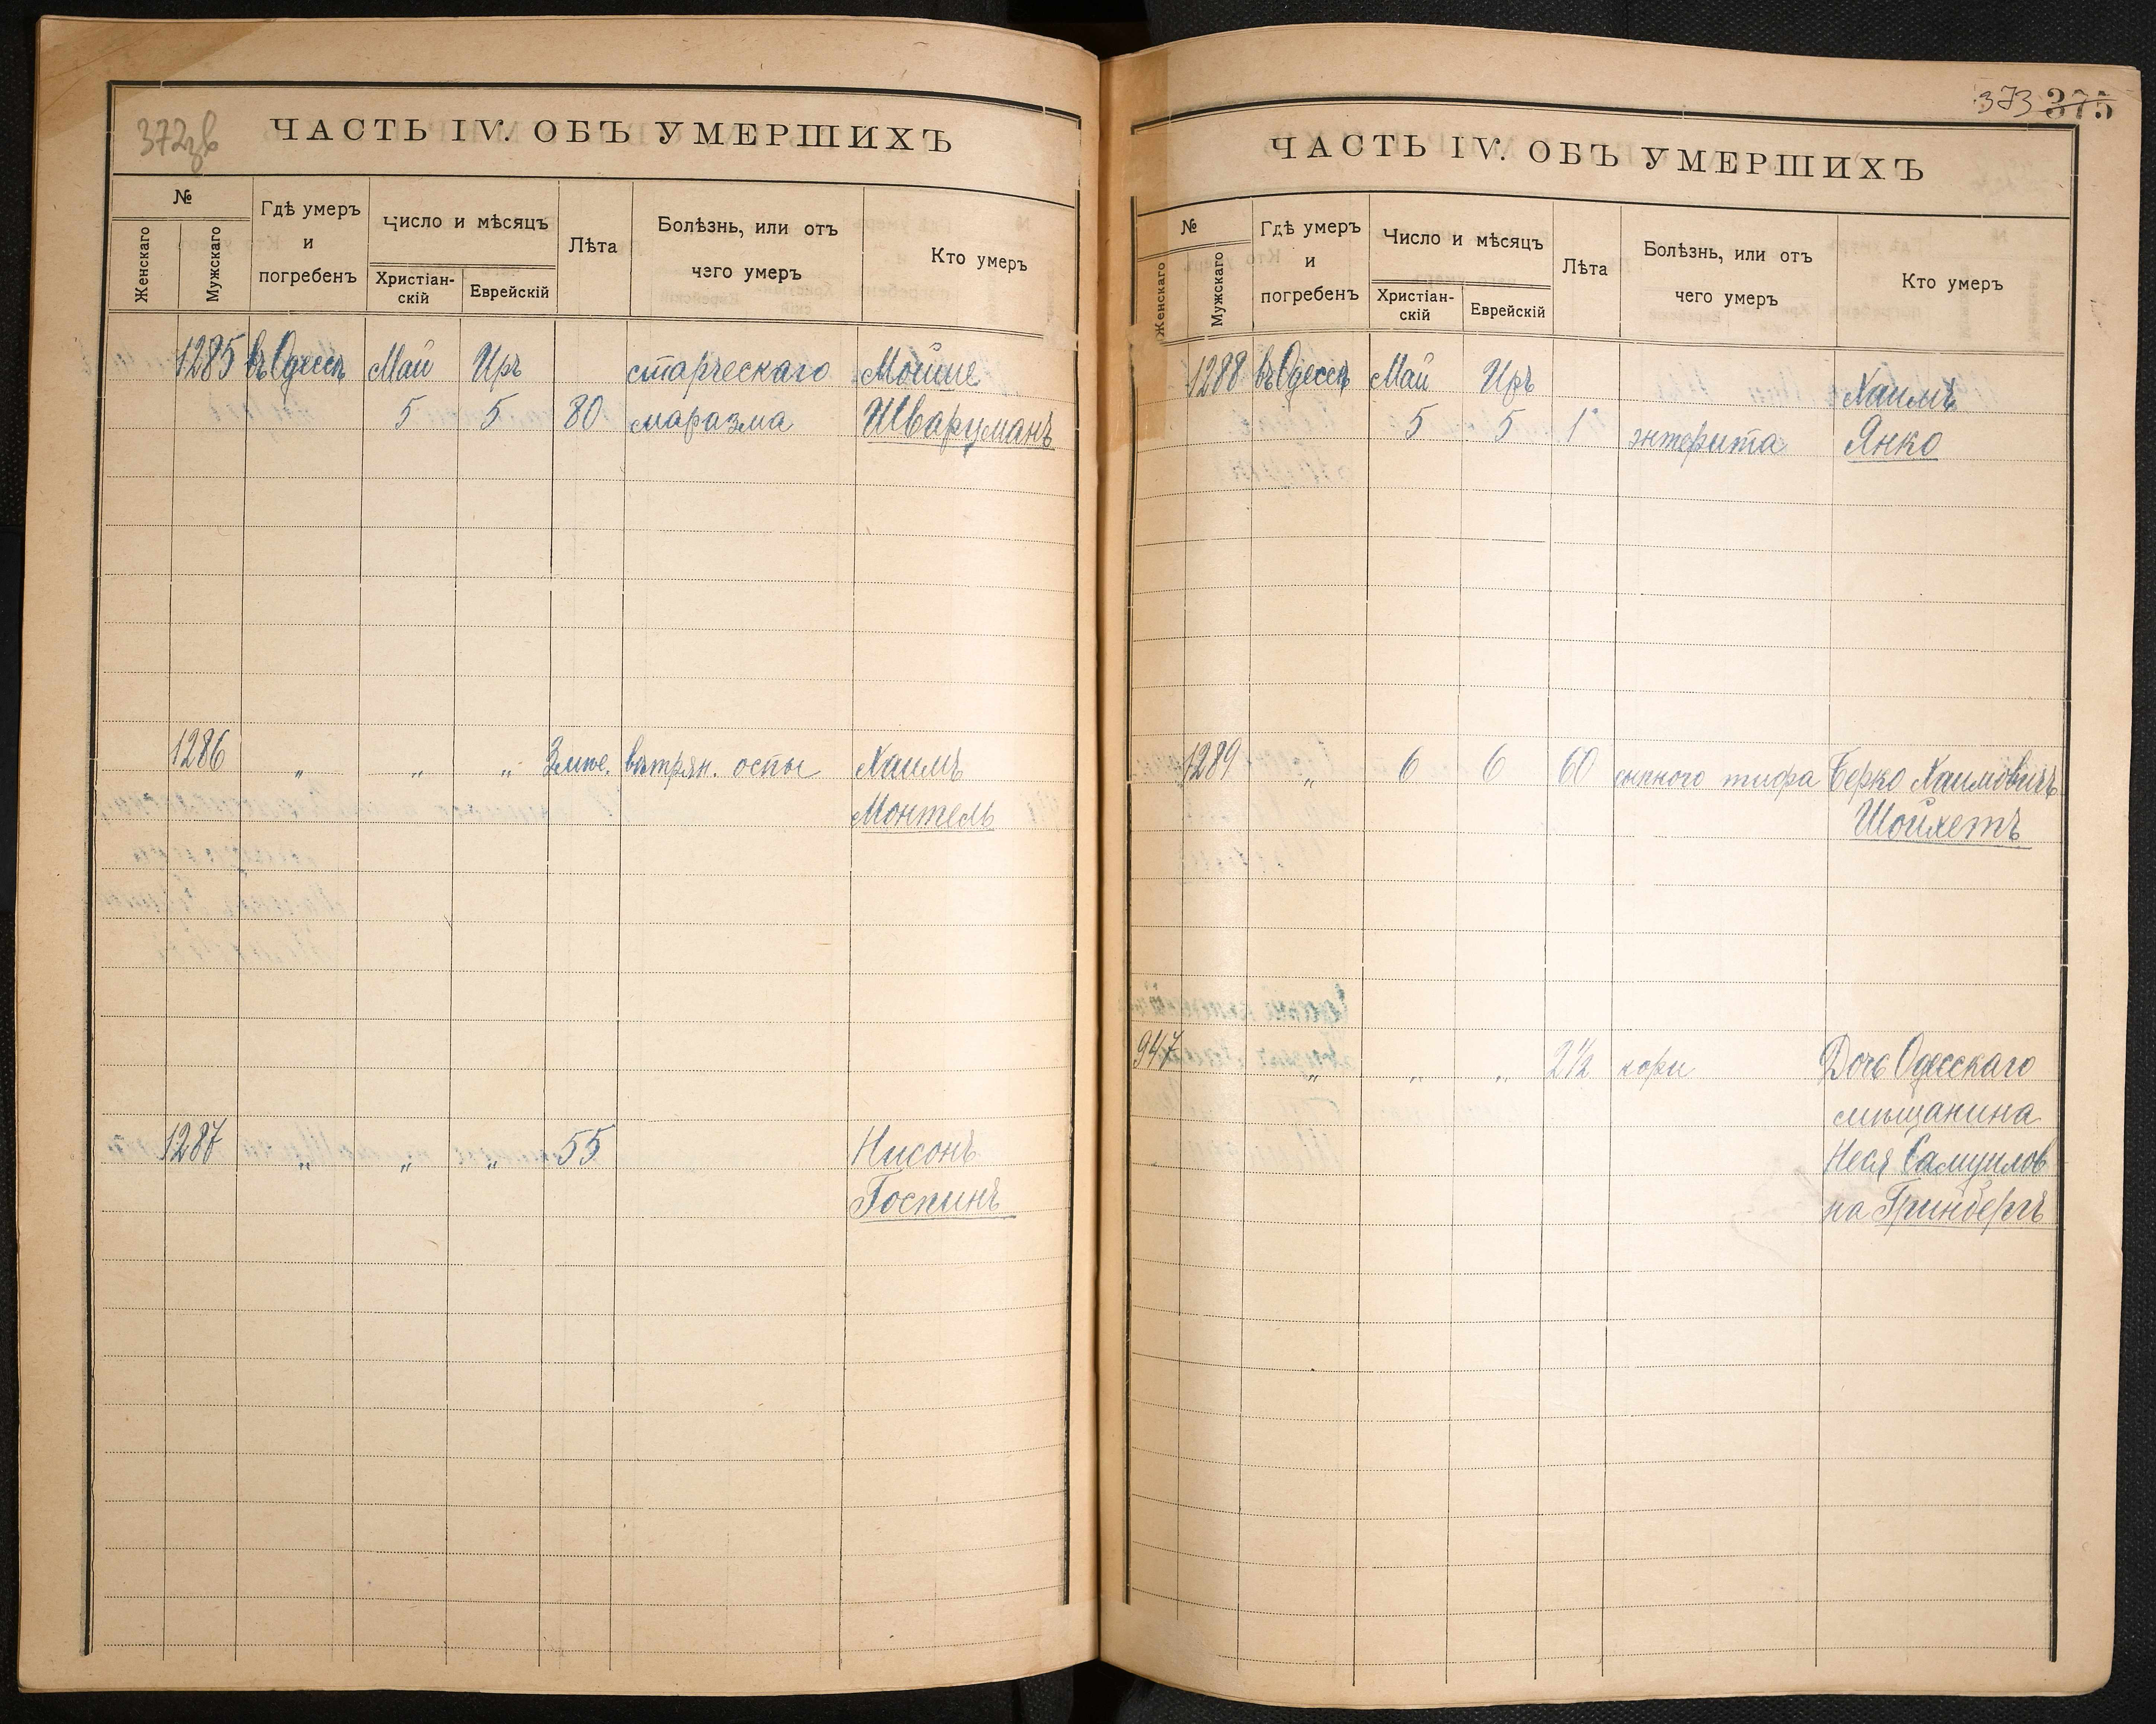 372зв
ЧАСТЬ IV. ОБЪ УМЕРШИХЪ
№
Женскаго
Мужскаго
Гдѣ умеръ
и
погребенъ
Число и мѣсяцъ
Христіан-
скій
Еврейскій
Лѣта
Болѣзнь, или отъ
чего умеръ
Кто умеръ
1285 въ Одессѣ Май Иръ старческаго Мойше
5 5 80 маразма Шварцманъ
1286 „ „ „ вѣтрян. оспы Хаимъ
Монтель
1287 „ „ „ 55 Нисонъ
Госкинъ
373 375
ЧАСТЬ IV. ОБЪ УМЕРШИХЪ
№
Женскаго
Мужскаго
Гдѣ умеръ
и
погребенъ
Число и мѣсяцъ
Христіан-
скій
Еврейскій
Лѣта
Болѣзнь, или отъ
чего умеръ
Кто умеръ
1288 въ Одессѣ Май Иръ Хаимъ
5 5 1 энтерита Янко
1289 „ 6 6 60 сыпного тифа Берко Хаимовичъ
Шойхетъ
947 „ „ „ 2½ кори Дочь Одесскаго
мѣщанина
Неся Самуилов
на Гринбергъ